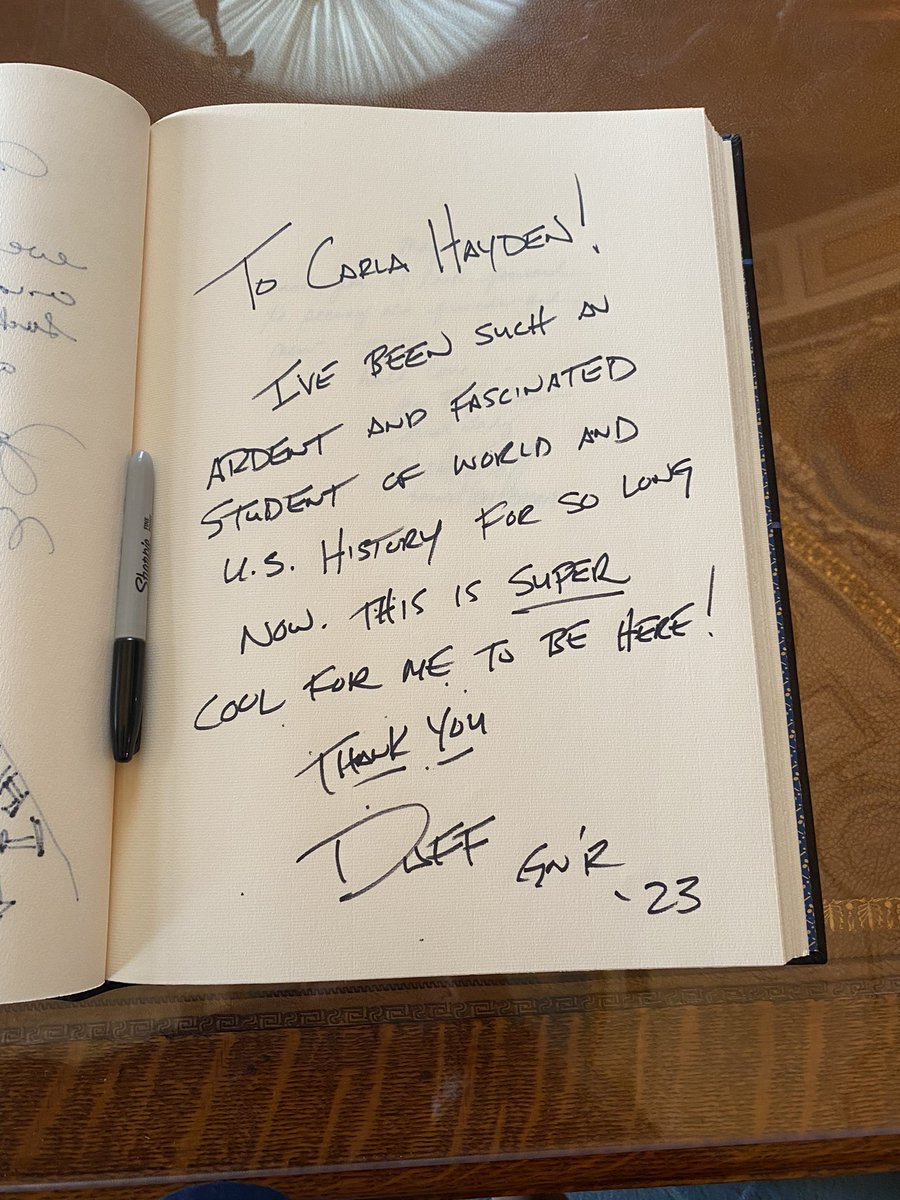 To Carla Hayden!
I've been such an
ardent and fascinated
student of world and
U.S. History for so long
now. This is super
cool for me to be here!
Thank you
Duff GN'R
'23
Sharpie